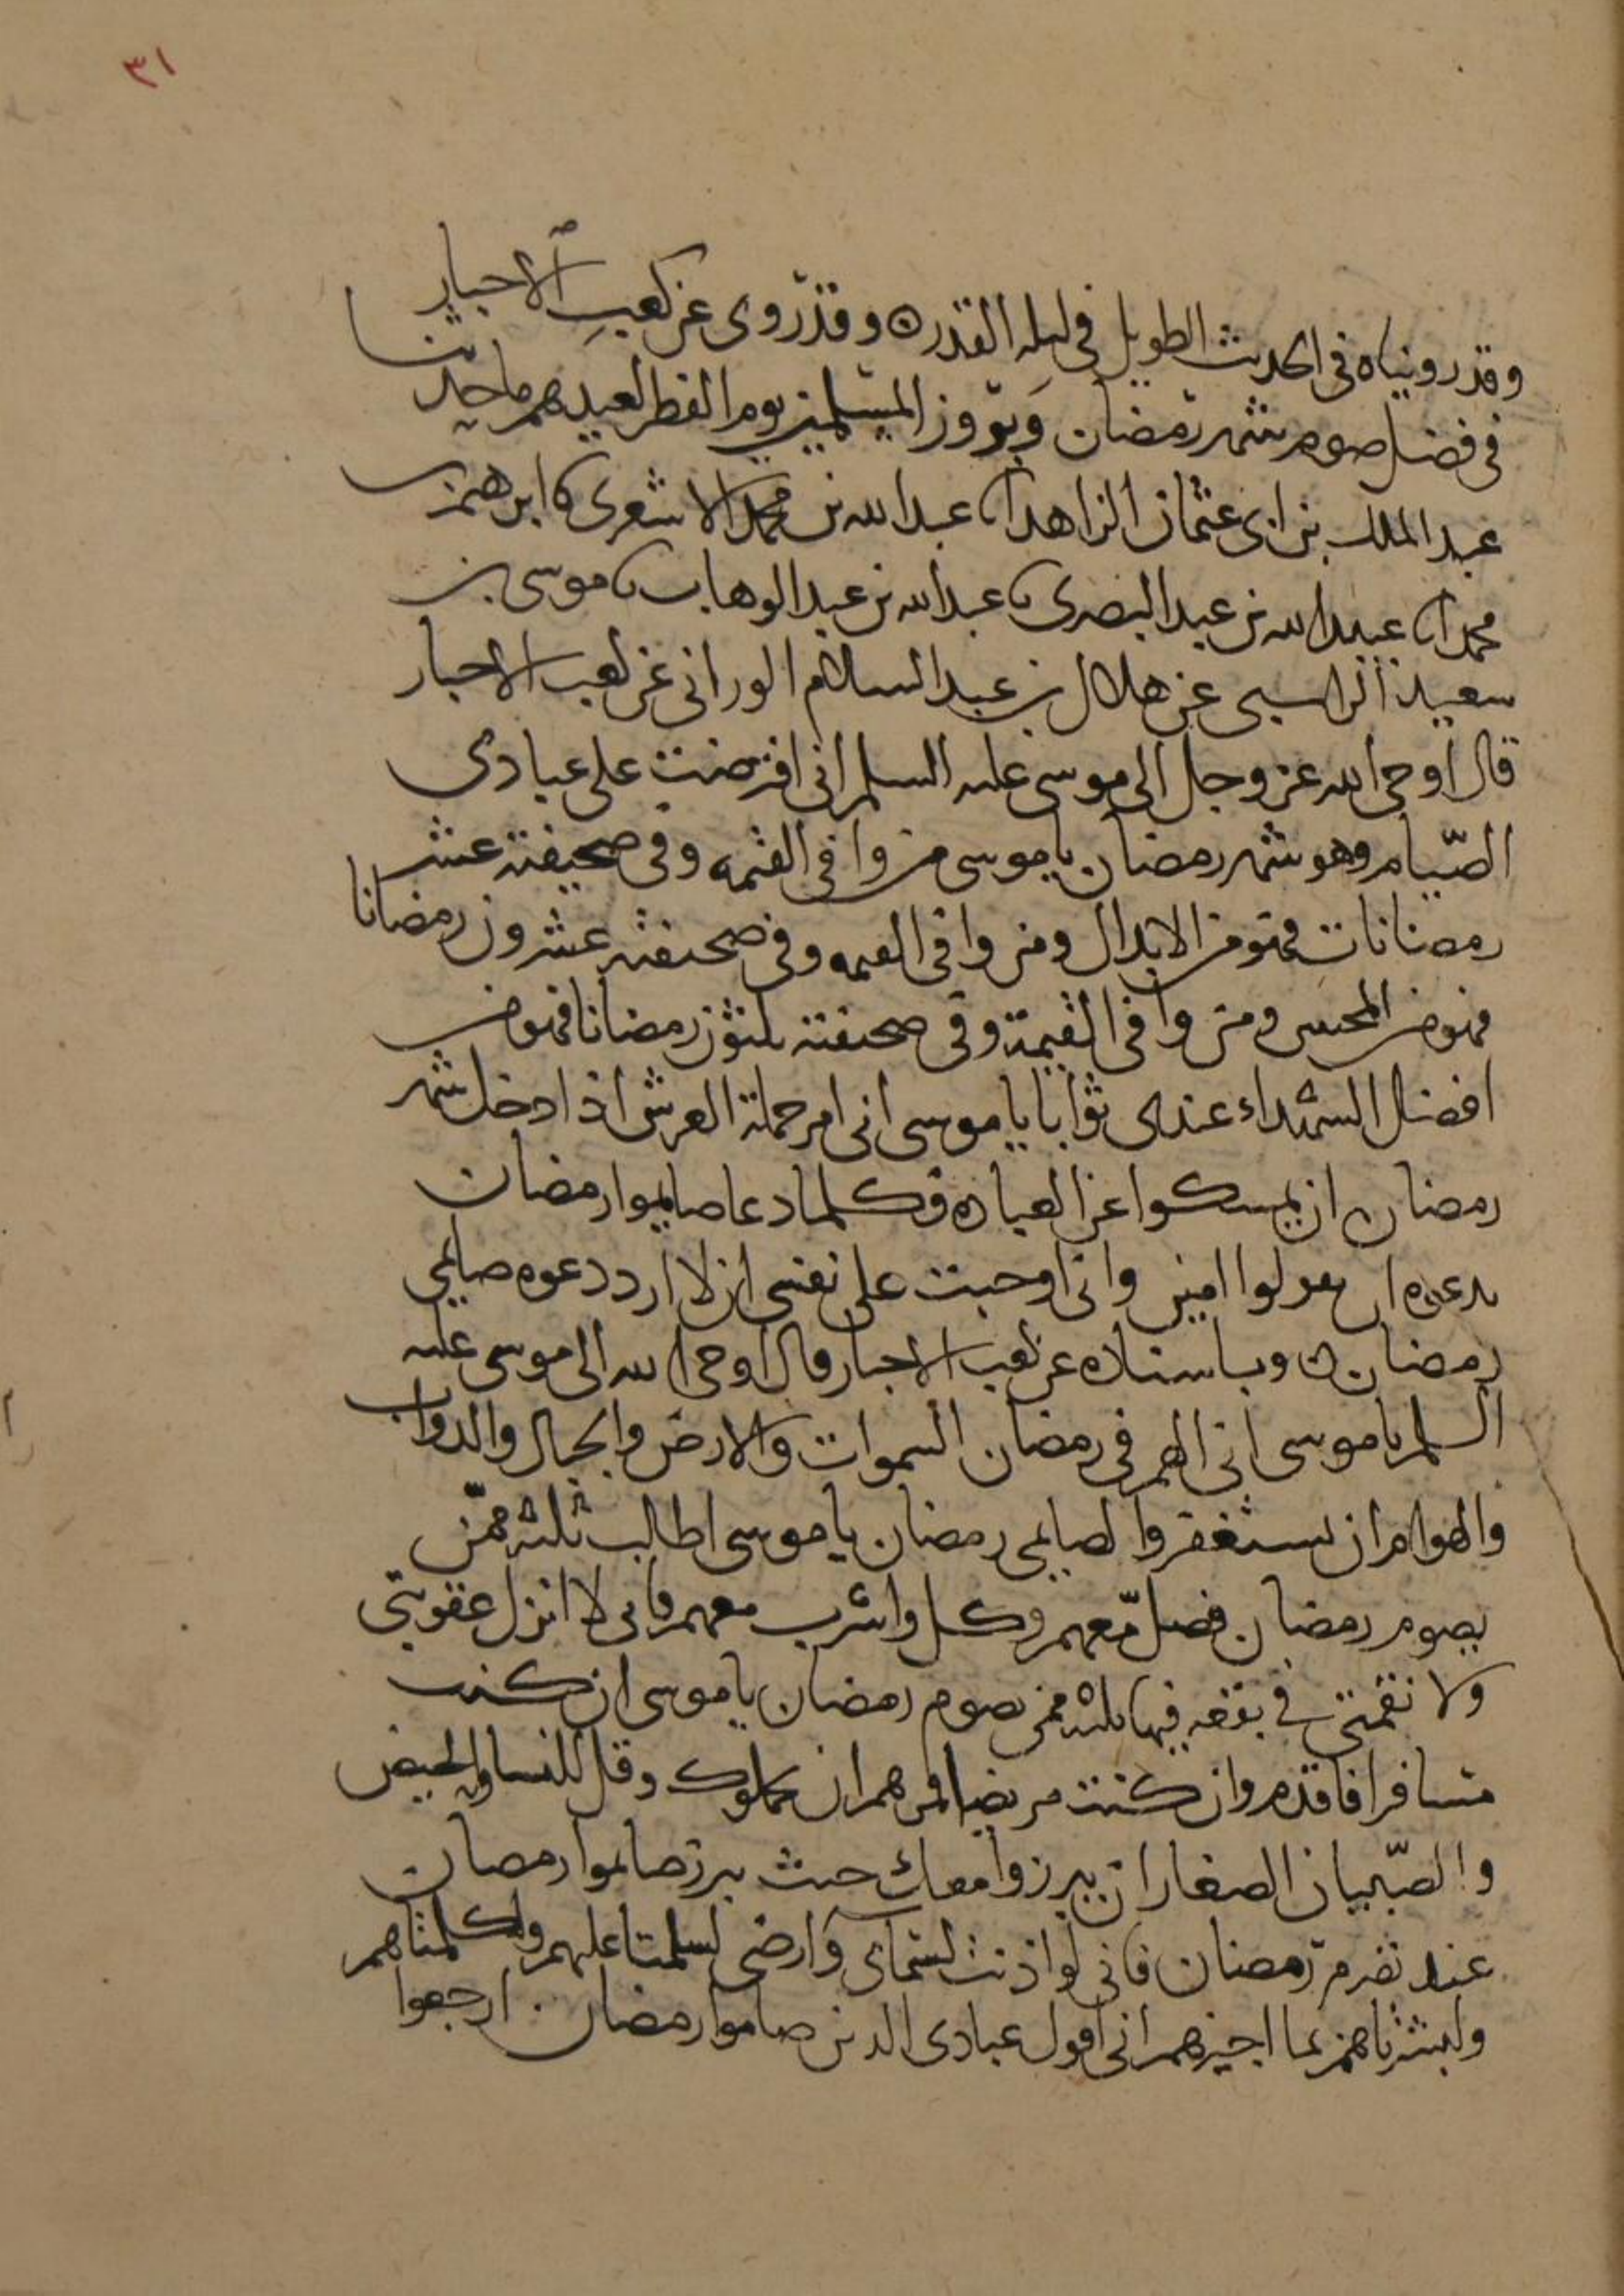 ٣١
وقد رويناه في الحديث الطويل في ليله القدر ٥ وقد روى عن كعب الاحبار
في فضل صوم شهر رمضان وبروز المسلمين يوم الفطر لعيدهم ما حدثنا
عبد الملك بن ابى عثمان الزاهد انا عبد الله بن محمد الاشعرى نا ابرهيم بن
محمد انا عبيد الله بن عبد البصرى نا عبد الله بن عبد الوهاب نا موسى بن
سعيد الراسبى عن هلال بن عبد السلام الورانى عن كعب الاحبار
قال اوحى الله عز وجل الى موسى عليه السلم انى افترضت على عبادى
الصّيام وهو شهر رمضان يا موسى من وافى القيمه وفى صحيفته عشر
رمضانات فهو من الابدال ومن وافى القيمه وفى صحيفته عشرون رمضانا
فهو من المخبتين ومن وافى القيمة وفى صحيفته ثلثون رمضانا فهو من
افضل الشهداء عندى ثوابا يا موسى انى امر حملة العرش اذا دخل شهر
رمضان ان يمسكوا عن العباده فكلما دعا صايموا رمضان
بدعوه ان يقولوا امين وانى اوجبت على نفسى ان لا ارد دعوه صايمى
رمضان ٥ وباسناده عن كعب الاحبار قال اوحى الله الى موسى عليه
السلم يا موسى انى الهم فى رمضان السموات والارض والجبال والدواب
والهوام ان يستغفروا لصايمى رمضان يا موسى اطلب ثلثه ممّن
يصوم رمضان فصل معهم وكل واشرب معهم فانى لا انزل عقوبتى
ولا نقمتى فى بقعه فيها ثلثه ممن يصوم رمضان يا موسى ان كنت
مسافرا فاقدم وان كنت مريضا فمرهم ان يحملوك وقل للنسا والحيض
والصّبيان الصغار ان يبرزوا معك حيث يبرز صايموا رمضان
عند تصرم رمضان فانى لو اذنت لسمائى وارضى لسلمتا عليهم ولكلمتاهم
ولبشرتاهم بما اجيزهم انى اقول عبادى الذين صاموا رمضان ارجعوا